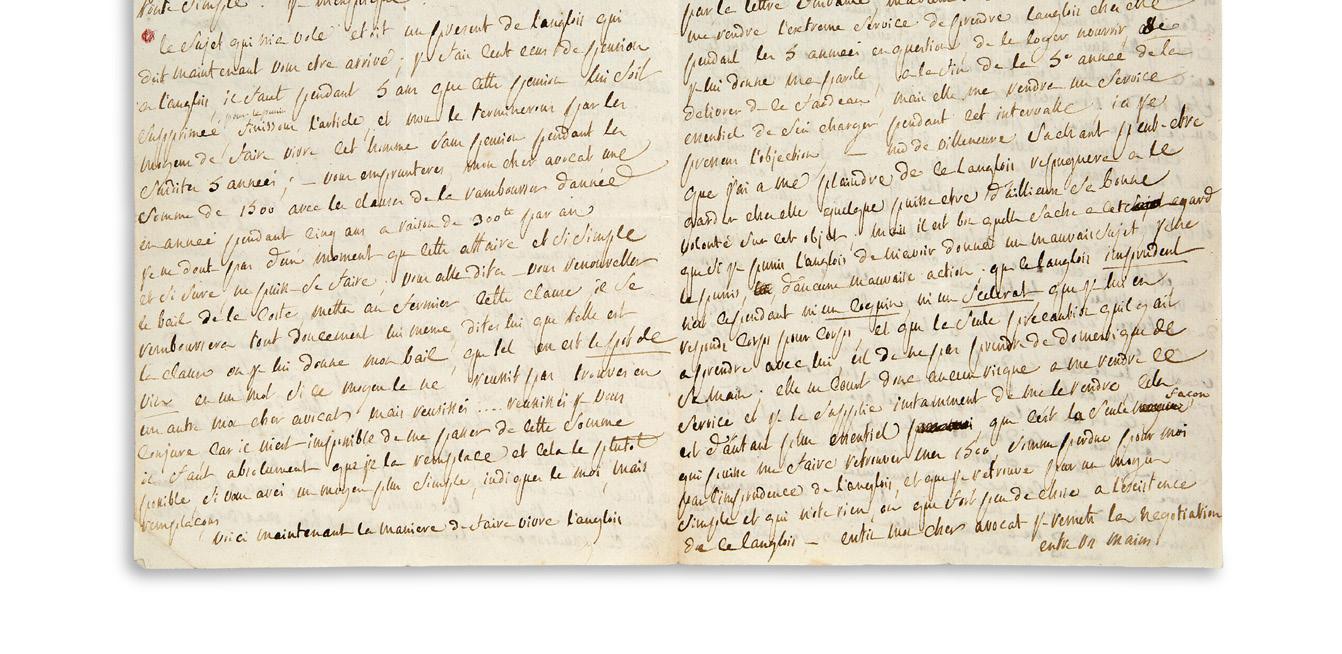 le sujet qui m'a volé etoit un present de langlois qui
doit maintenant vous etre arrivé; je fais cent ecus de pension
a langlois, il faut pendant 5 ans que cette pension lui soit
supprimée, finissons l'article, et nous le terminerons par les
moyens de faire vivre cet homme sans pension pendant les
susdites 5 années; — vous emprunteres, mon cher avocat une
somme de 1500 avec les clauses de la rembourser d'année
en année pendant cinq ans a raison de 300ᵗᵗ par an
je ne doute pas d'un moment que cette affaire et si simple
et si sure ne puisse se faire. vous alles dites-vous renouveller
le bail de la Coste, mettes au fermier cette clause il se
remboursera tout doucement lui meme dites lui que telle est
la clause ou je lui donne mon bail, que tel en est le pot de
vin en un mot si ce moyen la ne réunit pas trouves en
un autre mon cher avocat mais reussisses .... reussisses je vous
conjure car il m'est impossible de me passer de cette somme
il faut absolument que je la remplace et cela le plutot
possible si vous aves un moyen plus simple, indiques le moi, mais
remplaçons
voici maintenant la maniere de faire vivre langlois
me rendre l'extreme service de prendre langlois chez elle
pendant les 5 années en question de le loger nourrir &c
je lui donne ma parole a la fin de la 5ᵉ année de la
delivrer de ce fardeau, mais elle me rendra un service
essentiel de s'en charger pendant cet intervalle ici je
previens l'objection — md de villeneuve sachant peut-etre
que j'ai a me plaindre de ce langlois repugnera a le
garder chez elle quelque puisse etre d'ailleurs sa bonne
volonté sur cet objet, mais il est bon quelle sache a cet egard
que si je punis langlois de m'avoir donné un mauvais sujet, je ne
le punis, d'aucune mauvaise action. que langlois imprudent
n'est cependant ni un Coquin, ni un Scelerat que je lui en
reponds corps pour corps, et que la seule precaution qu'il y ait
a prendre avec lui est de ne pas prendre de domestique de
sa main. elle ne court donc aucun risque a me rendre ce
service et je la supplie instamment de me le rendre cela
est d'autant plus essentiel que c'est la seule façon
qui puisse me faire retrouver mes 1500, somme perdue pour moi
par l'imprudence de langlois, et que je retrouve par un moyen
simple et qui n'ote rien, ou que fort peu de chose a l'existence
de ce langlois — enfin mon cher avocat je remets la negotiation
entre vos mains!